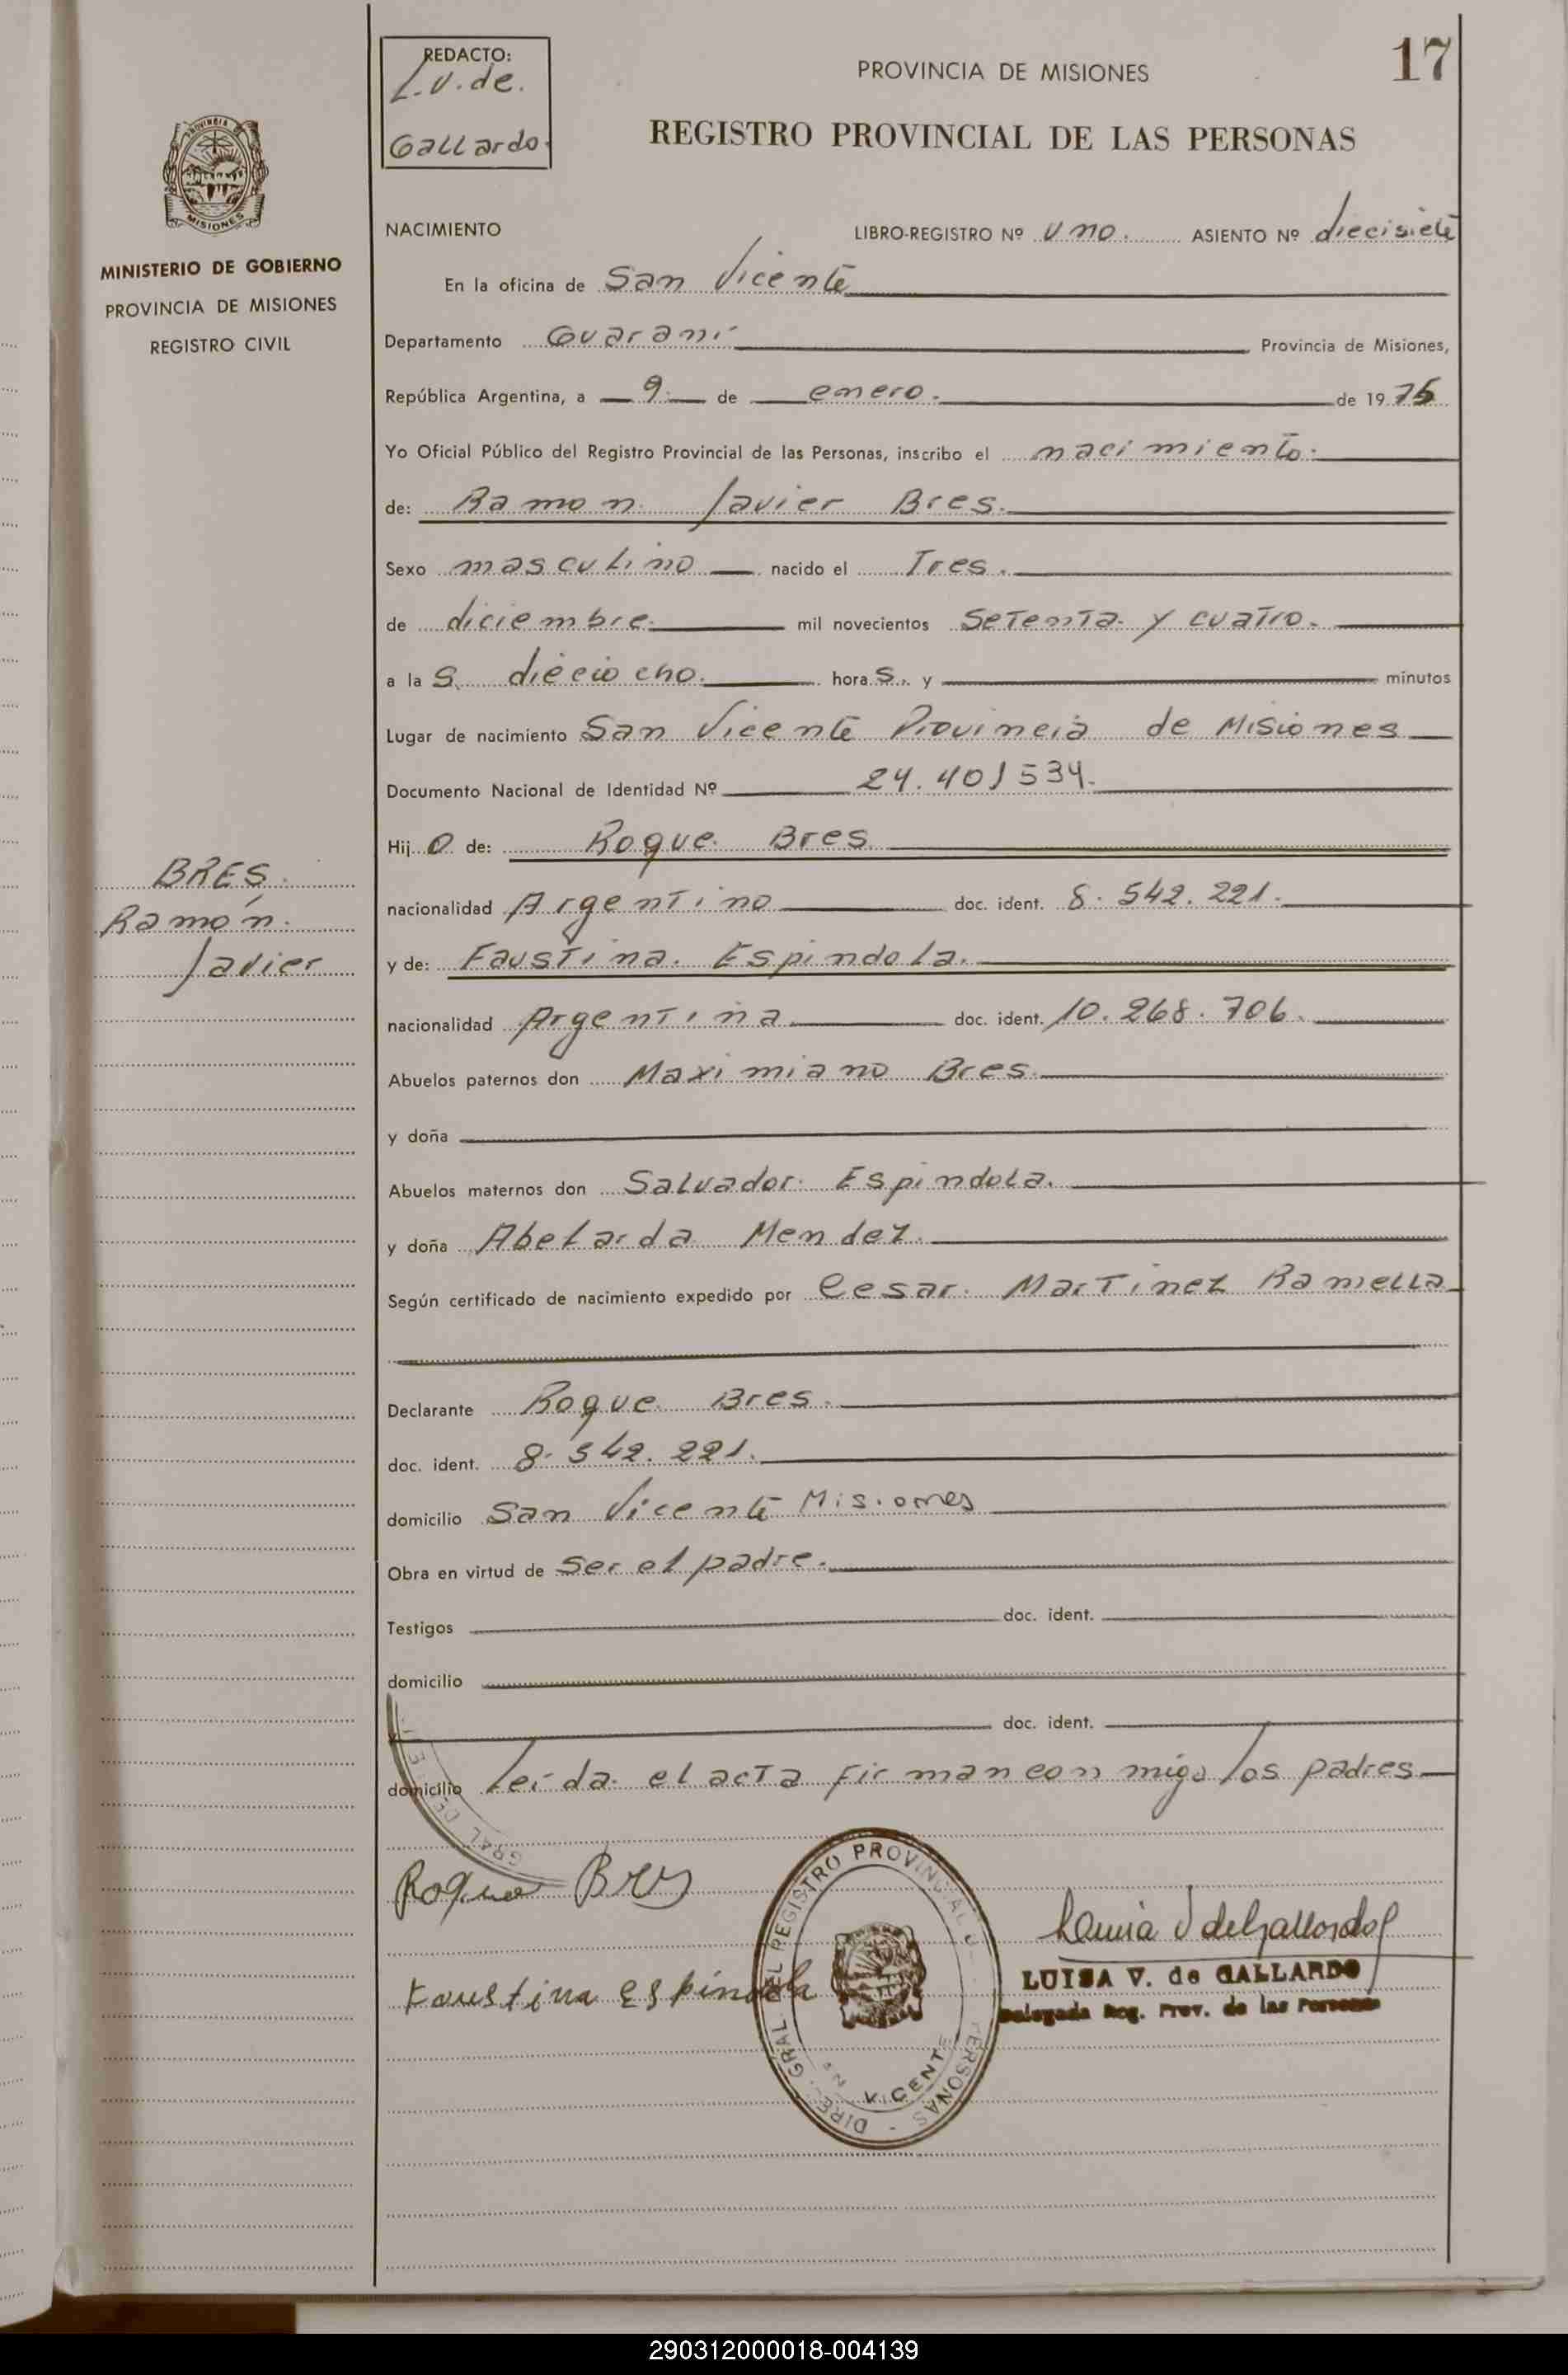 REDACTO:
L.V. de.
Gallardo.
PROVINCIA DE MISIONES
17
REGISTRO PROVINCIAL DE LAS PERSONAS
PROVINCIA DE
MISIONES
MINISTERIO DE GOBIERNO
PROVINCIA DE MISIONES
REGISTRO CIVIL
NACIMIENTO LIBRO-REGISTRO Nº uno. ASIENTO Nº diecisiete
En la oficina de San Vicente
Departamento Guaraní Provincia de Misiones,
República Argentina, a 9. de enero. de 1975
Yo Oficial Público del Registro Provincial de las Personas, inscribo el nacimiento.
de: Ramon Javier Bres.
Sexo masculino nacido el Tres.
de diciembre. mil novecientos Setenta y cuatro.
a las dieciocho. horas. y minutos
Lugar de nacimiento San Vicente Provincia de Misiones
Documento Nacional de Identidad Nº 24.401534.
Hijo de: Roque Bres
nacionalidad Argentino doc. ident. 8.542.221.
y de: Faustina. Espindola.
nacionalidad Argentina doc. ident. 10.268.706.
Abuelos paternos don Maximiano Bres.
y doña
Abuelos maternos don Salvador. Espindola.
y doña Abelarda Mendez.
Según certificado de nacimiento expedido por Cesar. Martinez Ramella
BRES.
Ramón.
Javier
Declarante Roque Bres.
doc. ident. 8.542.221.
domicilio San Vicente Misiones
Obra en virtud de Ser el padre.
Testigos doc. ident.
domicilio
doc. ident.
domicilio Leída el acta firman conmigo los padres
GRAL DE
Roque Bres
Faustina Espindola
DIRE. GRAL. DEL REGISTRO PROVINCIAL PERSONAS
VICENTE
Luisa V de Gallardo
LUISA V. de GALLARDO
Delegada Reg. Prov. de las Personas
290312000018-004139